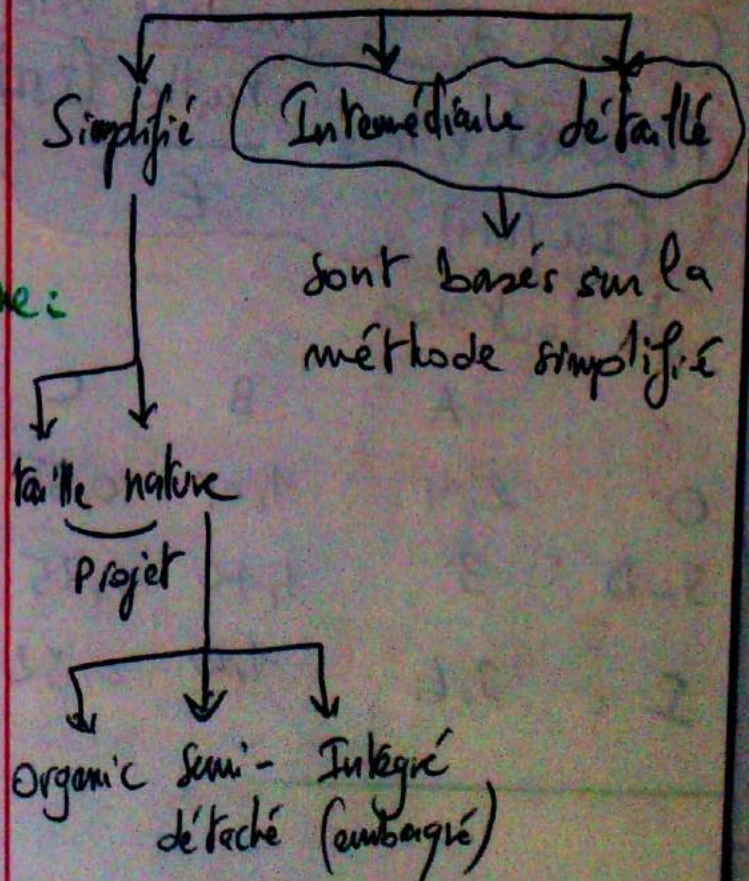 Simplifié Intermédiaire détaillé
sont basés sur la
méthode simplifié
taille nature
Projet
organic semi- Intégré
détaché (embarqué)